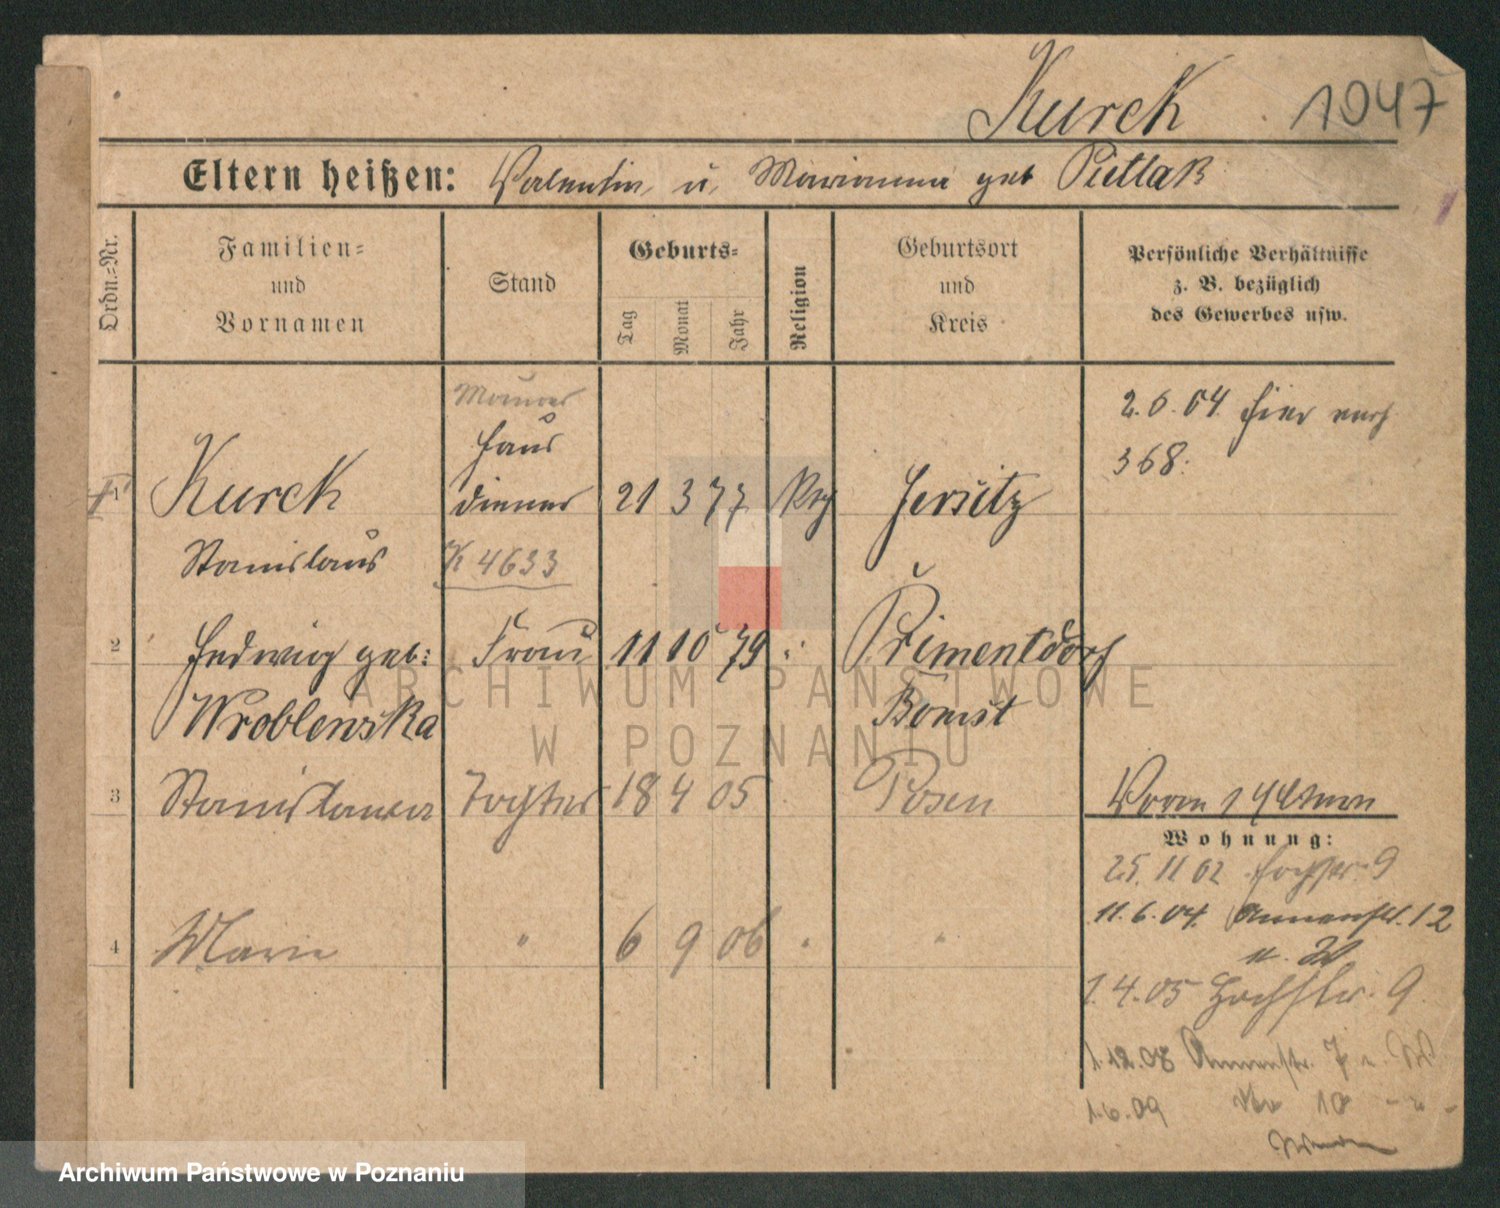 Kurek 1947
Eltern heißen: Valentin u. Marianna geb Pietlak
Ordn.=Nr.
Familien=
und
Vornamen
Stand
Geburts=
Tag
Monat
Jahr
Religion
Geburtsort
und
Kreis
Persönliche Verhältnisse
z. B. bezüglich
des Gewerbes usw.
Maurer
2.6.04 hier nach
368.
Haus
1 Kurek diener 21 3 77 Jersitz
Stanislaus K 4633
2 Hedwig geb: Frau 11 10 79 Primentdorf
Wroblewska Bomst
3 Stanislawa Tochter 18 4 05 Posen
Wohnung:
25.11 02 9
11.6.04. Annenstr. 12
4 Marie " 6 9 06 " "
1.4.05 Hochstr. 9
1.12.08 Annenstr. 7
1.6.09 10
ARCHIWUM PAŃSTWOWE
W POZNANIU
Archiwum Państwowe w Poznaniu